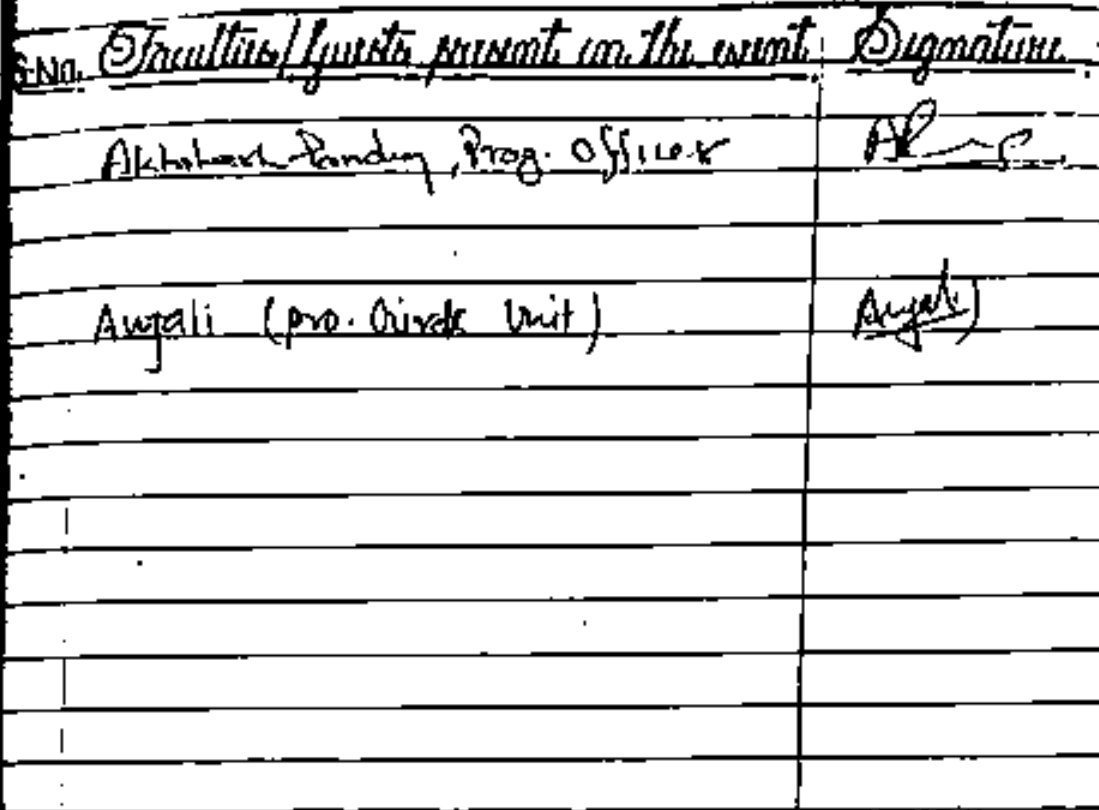 S.No. Faculties/guests present in the event Signature
Pandey, Prog. Officer
Anjali (pro. Unit) Anjali